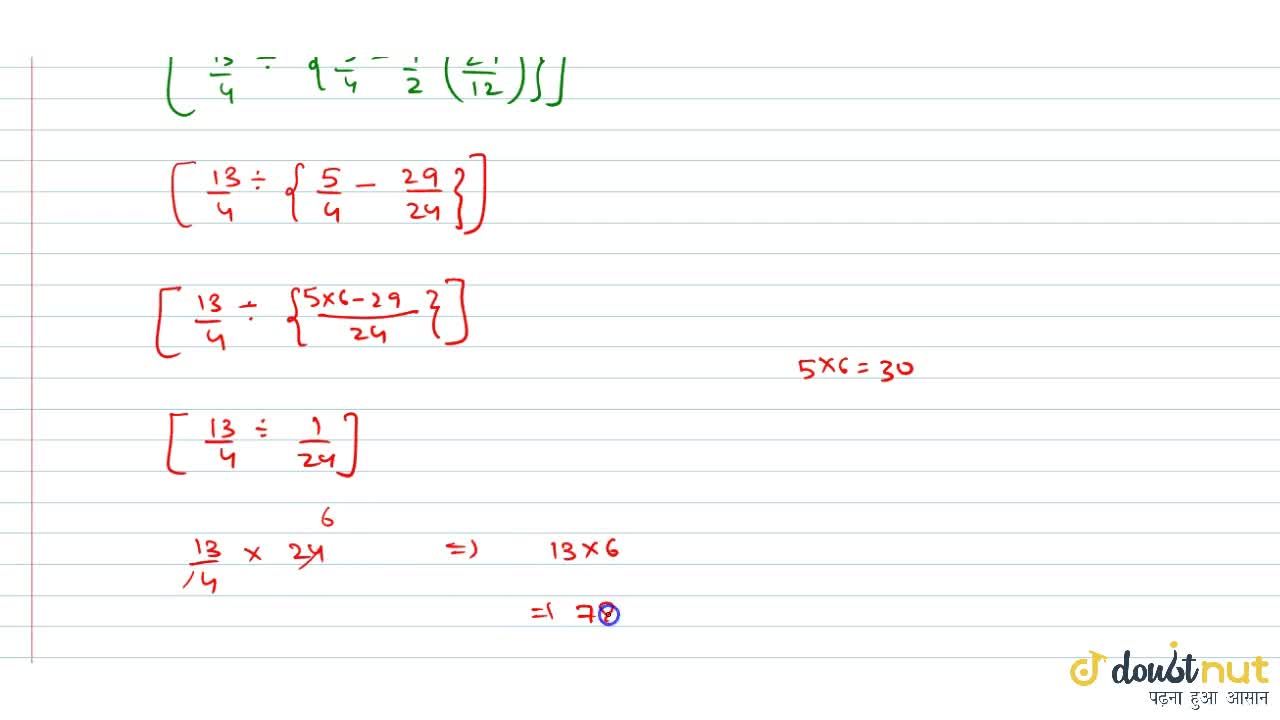 [ 13/4 ÷ { 5/4 - 1/2 ( 29/12 ) } ]
[ 13/4 ÷ { 5/4 - 29/24 } ]
[ 13/4 ÷ { 5×6-29/24 } ]
5×6 = 30
[ 13/4 ÷ 1/24 ]
6
13/4 × 24 => 13×6
=) 78
doubtnut
पढ़ना हुआ आसान